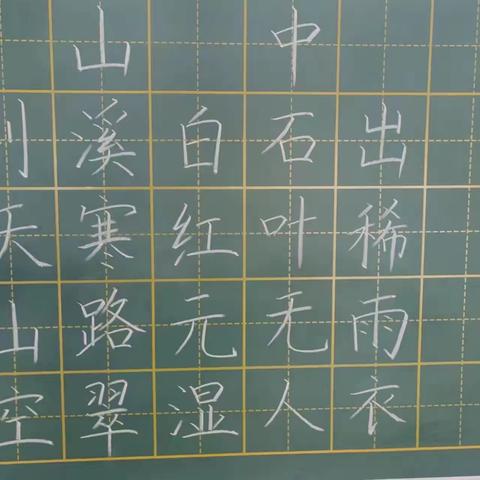 山中
溪白石出
天寒红叶稀
山路元无雨
空翠湿人衣